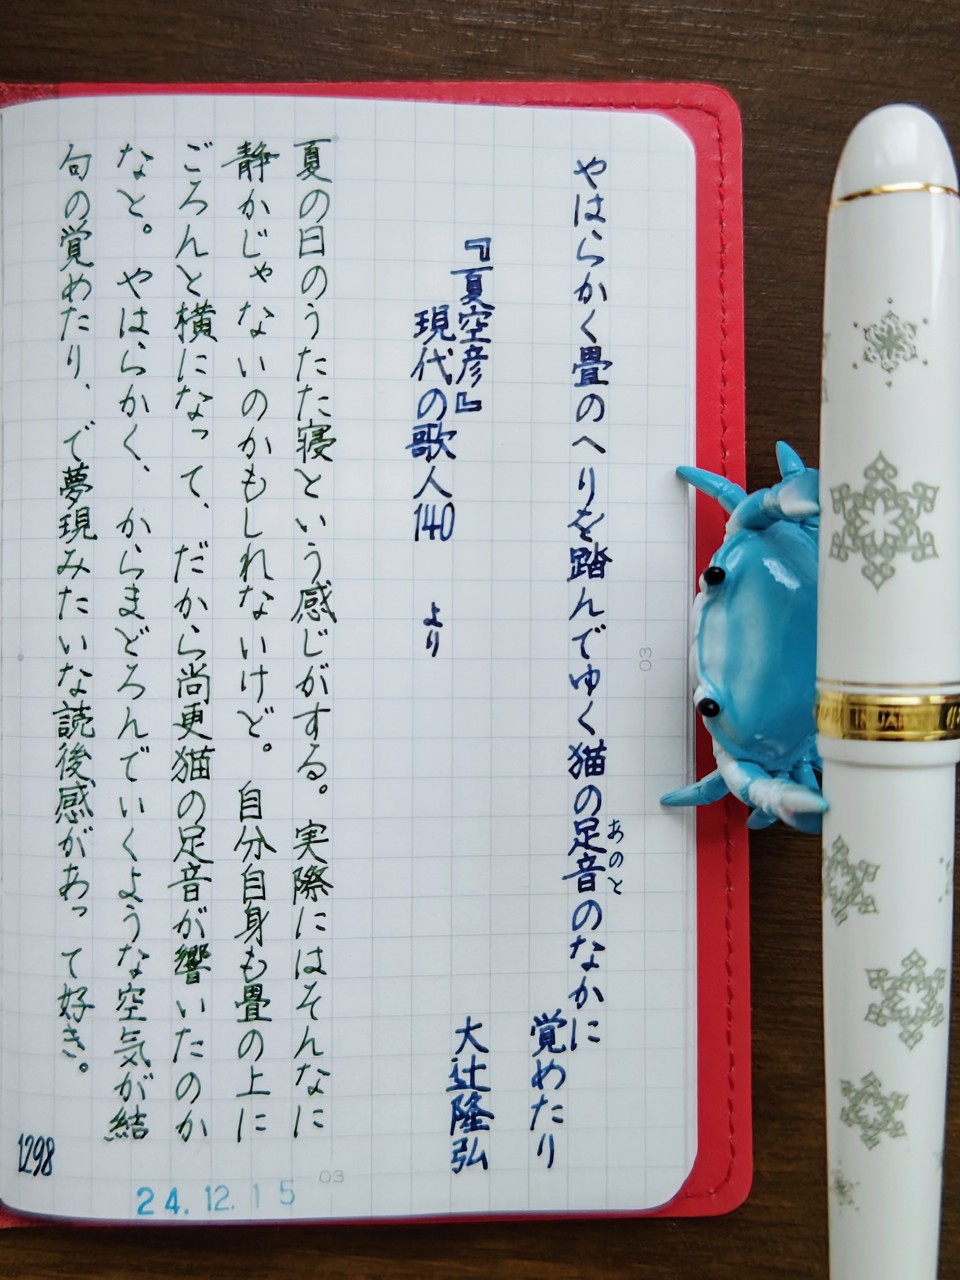 やはらかく畳のへりを踏んでゆく猫の足音のなかに
あのと
覚めたり
大辻隆弘
『夏空彦』
現代の歌人140　より
夏の日のうたた寝という感じがする。実際にはそんなに
静かじゃないのかもしれないけど。自分自身も畳の上に
ごろんと横になって、だから尚更猫の足音が響いたのか
なと。やはらかく、からまどろんでいくような空気が結
句の覚めたり、で夢現みたいな読後感があって好き。
1298
24.12.15
03
03